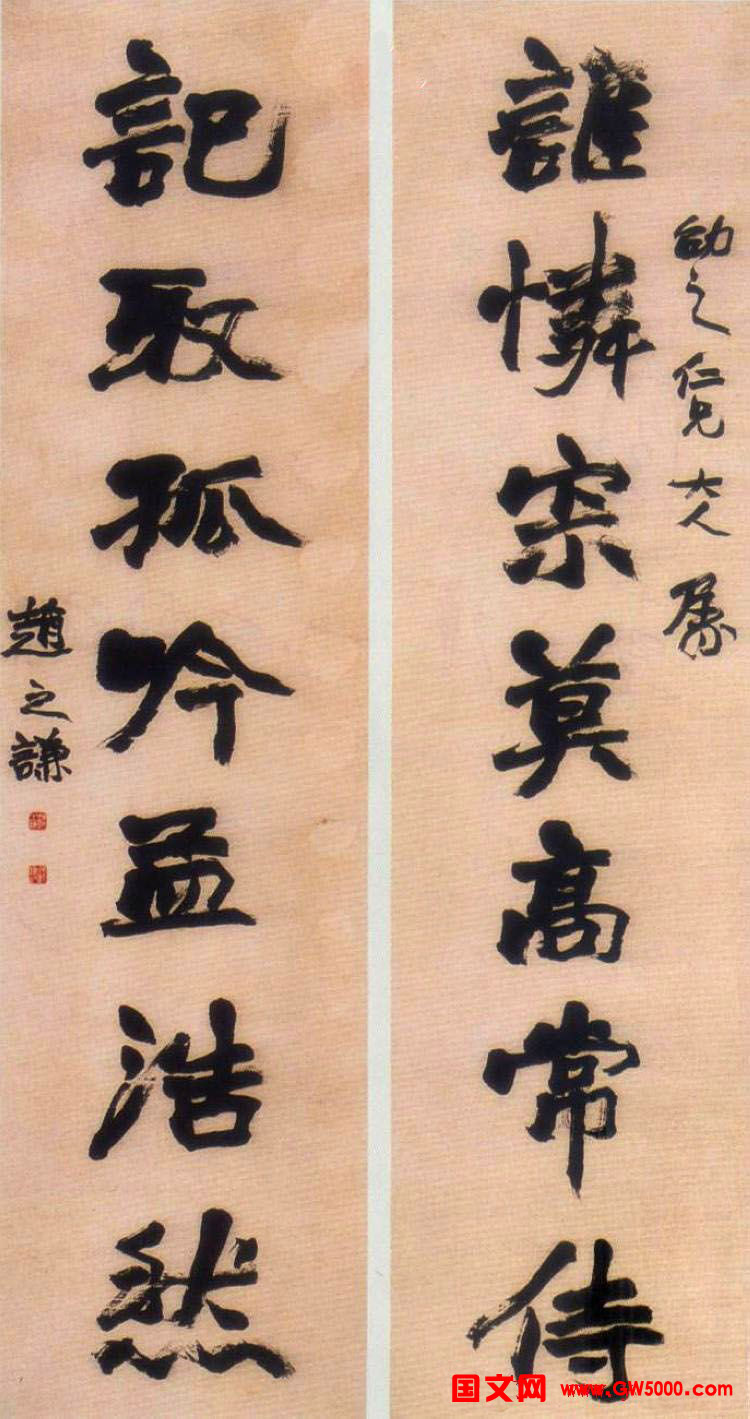 幼之仁兄大人属
誰憐宗莫高常侍
記取孤吟孟浩然
趙之謙
国文网 www.GW5000.com